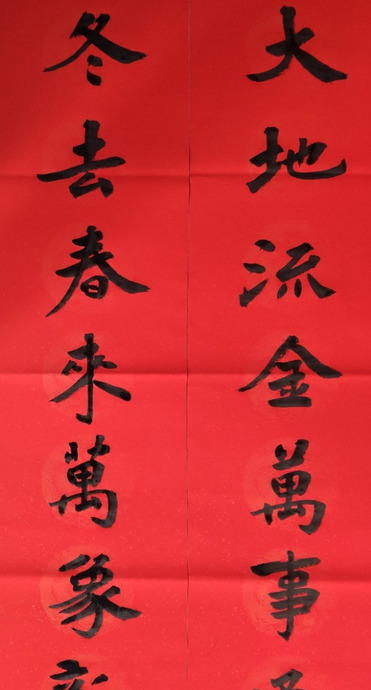 大地流金萬事
冬去春來萬象